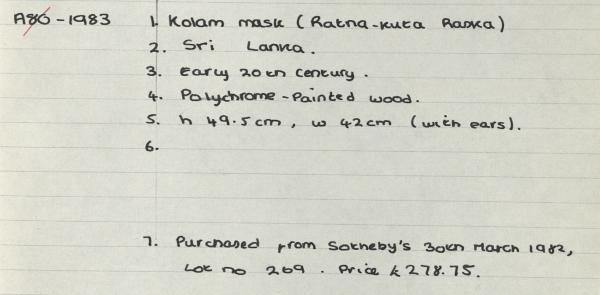 A86-1983 1. Kolam mask (Ratna-kuta Raska)
2. Sri Lanka.
3. Early 20th century.
4. Polychrome-Painted wood.
5. h 49.5cm, w 42cm (with ears).
6.
7. Purchased from Sotheby's 30th March 1982,
Lot no 269. Price £278.75.